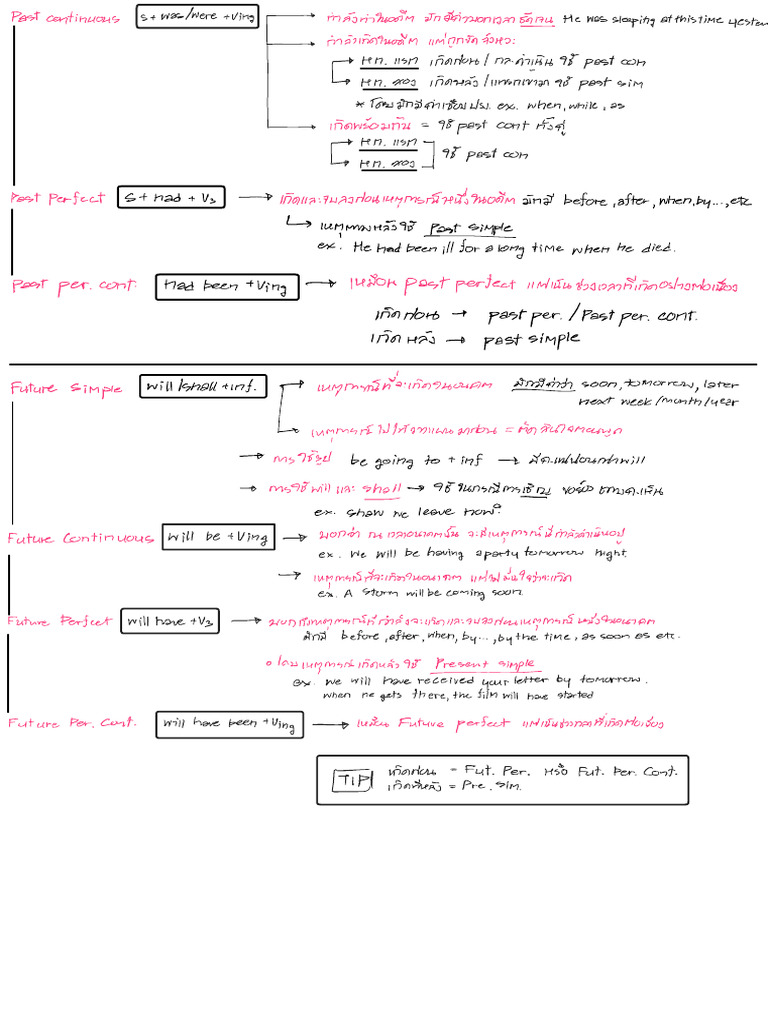 Past continuous S + was/were + Ving กำลังทำในอดีต มักมีคำบอกเวลาชัดเจน He was sleeping at this time yester
กำลังเกิดในอดีต แต่ถูกขัดจังหวะ
หก. แรก เกิดก่อน / กำลังดำเนิน ใช้ past con
หก. สอง เกิดหลัง / แทรกเข้ามา ใช้ past sim
* โดยมักมีคำเชื่อมปย. ex. when, while, as
เกิดพร้อมกัน = ใช้ past cont ทั้งคู่
หก. แรก
หก. สอง ใช้ past con
Past Perfect S + had + V3 เกิดและจบลงก่อนเหตุการณ์หนึ่งในอดีต มักมี before, after, when, by..., etc
เหตุการณ์หลังใช้ Past simple
ex. He had been ill for a long time when he died.
Past per. cont. had been + Ving เหมือน past perfect แต่เน้นช่วงเวลาที่เกิดอย่างต่อเนื่อง
เกิดก่อน → past per. / Past per. cont.
เกิดหลัง → past simple
Future Simple will/shall + inf. เหตุการณ์ที่จะเกิดในอนาคต มักมีคำว่า soon, tomorrow, later
next week/month/year
เหตุการณ์ไม่ได้วางแผนมาก่อน = ตัดสินใจตอนพูด
การใช้รูป be going to + inf → มีความแน่นอนกว่า will
การใช้ will และ shall → ใช้ในกรณีการเชิญ ขอร้อง ถามค.เห็น
ex. shall we leave now?
Future Continuous will be + Ving บอกว่า ณ เวลาอนาคตนั้น จะมีเหตุการณ์ที่กำลังดำเนินอยู่
ex. We will be having a party tomorrow night.
เหตุการณ์ที่จะเกิดในอนาคต แต่มั่นใจว่าจะเกิด
ex. A storm will be coming soon.
Future Perfect will have + V3 บอกถึงเหตุการณ์ที่กำลังจะเกิดและจบลงก่อนเหตุการณ์หนึ่งในอนาคต
มักมี before, after, when, by..., by the time, as soon as etc.
โดยเหตุการณ์เกิดหลังใช้ Present simple
ex. we will have received your letter by tomorrow.
when he gets there, the film will have started
Future Per. Cont. will have been + Ving เหมือน Future perfect แต่เน้นช่วงเวลาที่เกิดต่อเนื่อง
TIP เกิดก่อน = Fut. Per. หรือ Fut. Per. Cont.
เกิดทีหลัง = Pre. Sim.